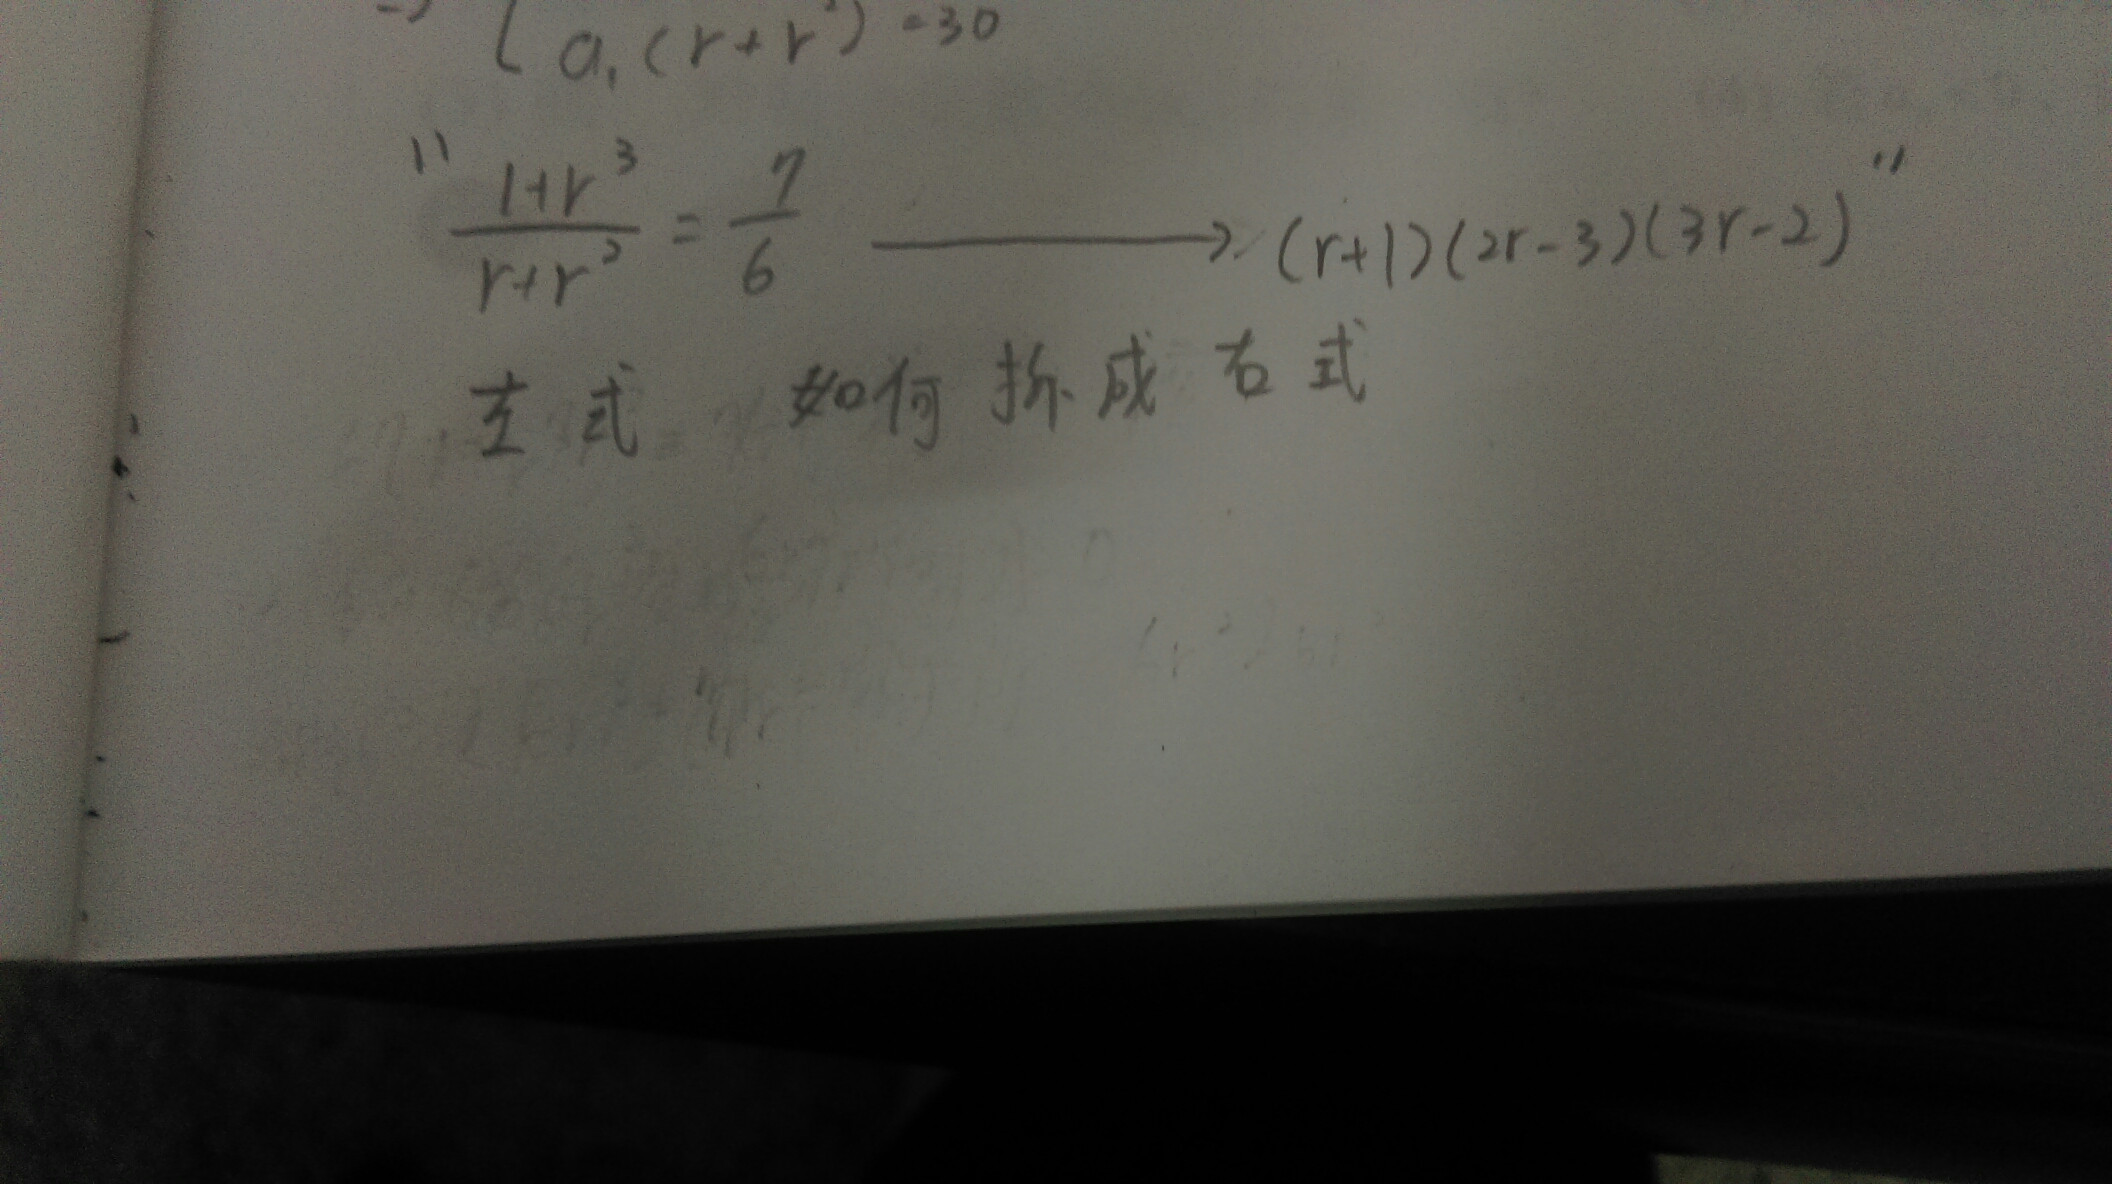 a₁(r+r²)=30
" (1+r³)/(r+r²) = 7/6 → (r+1)(2r-3)(3r-2) "
左式 如何拆成右式